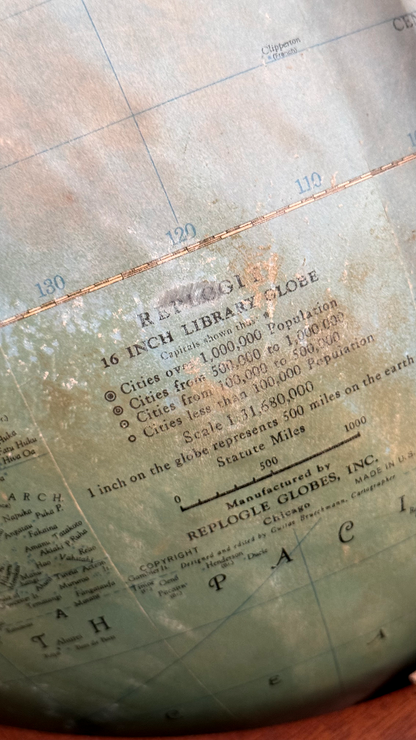 Clipperton
110
120
130
REPLOGLE
16 INCH LIBRARY GLOBE
Capitals shown thus
Cities over 1,000,000 Population
Cities from 500,000 to 1,000,000
Cities from 100,000 to 500,000
Cities less than 100,000 Population
Scale 1:31,680,000
1 inch on the globe represents 500 miles on the earth
Statute Miles
0 500 1000
Manufactured by
REPLOGLE GLOBES, INC.
Chicago, MADE IN U.S.
COPYRIGHT Designed and edited by Gustav Brueckmann, Cartographer
Henderson Ducie
P A C I
ARCH.
Napuka
A
T H